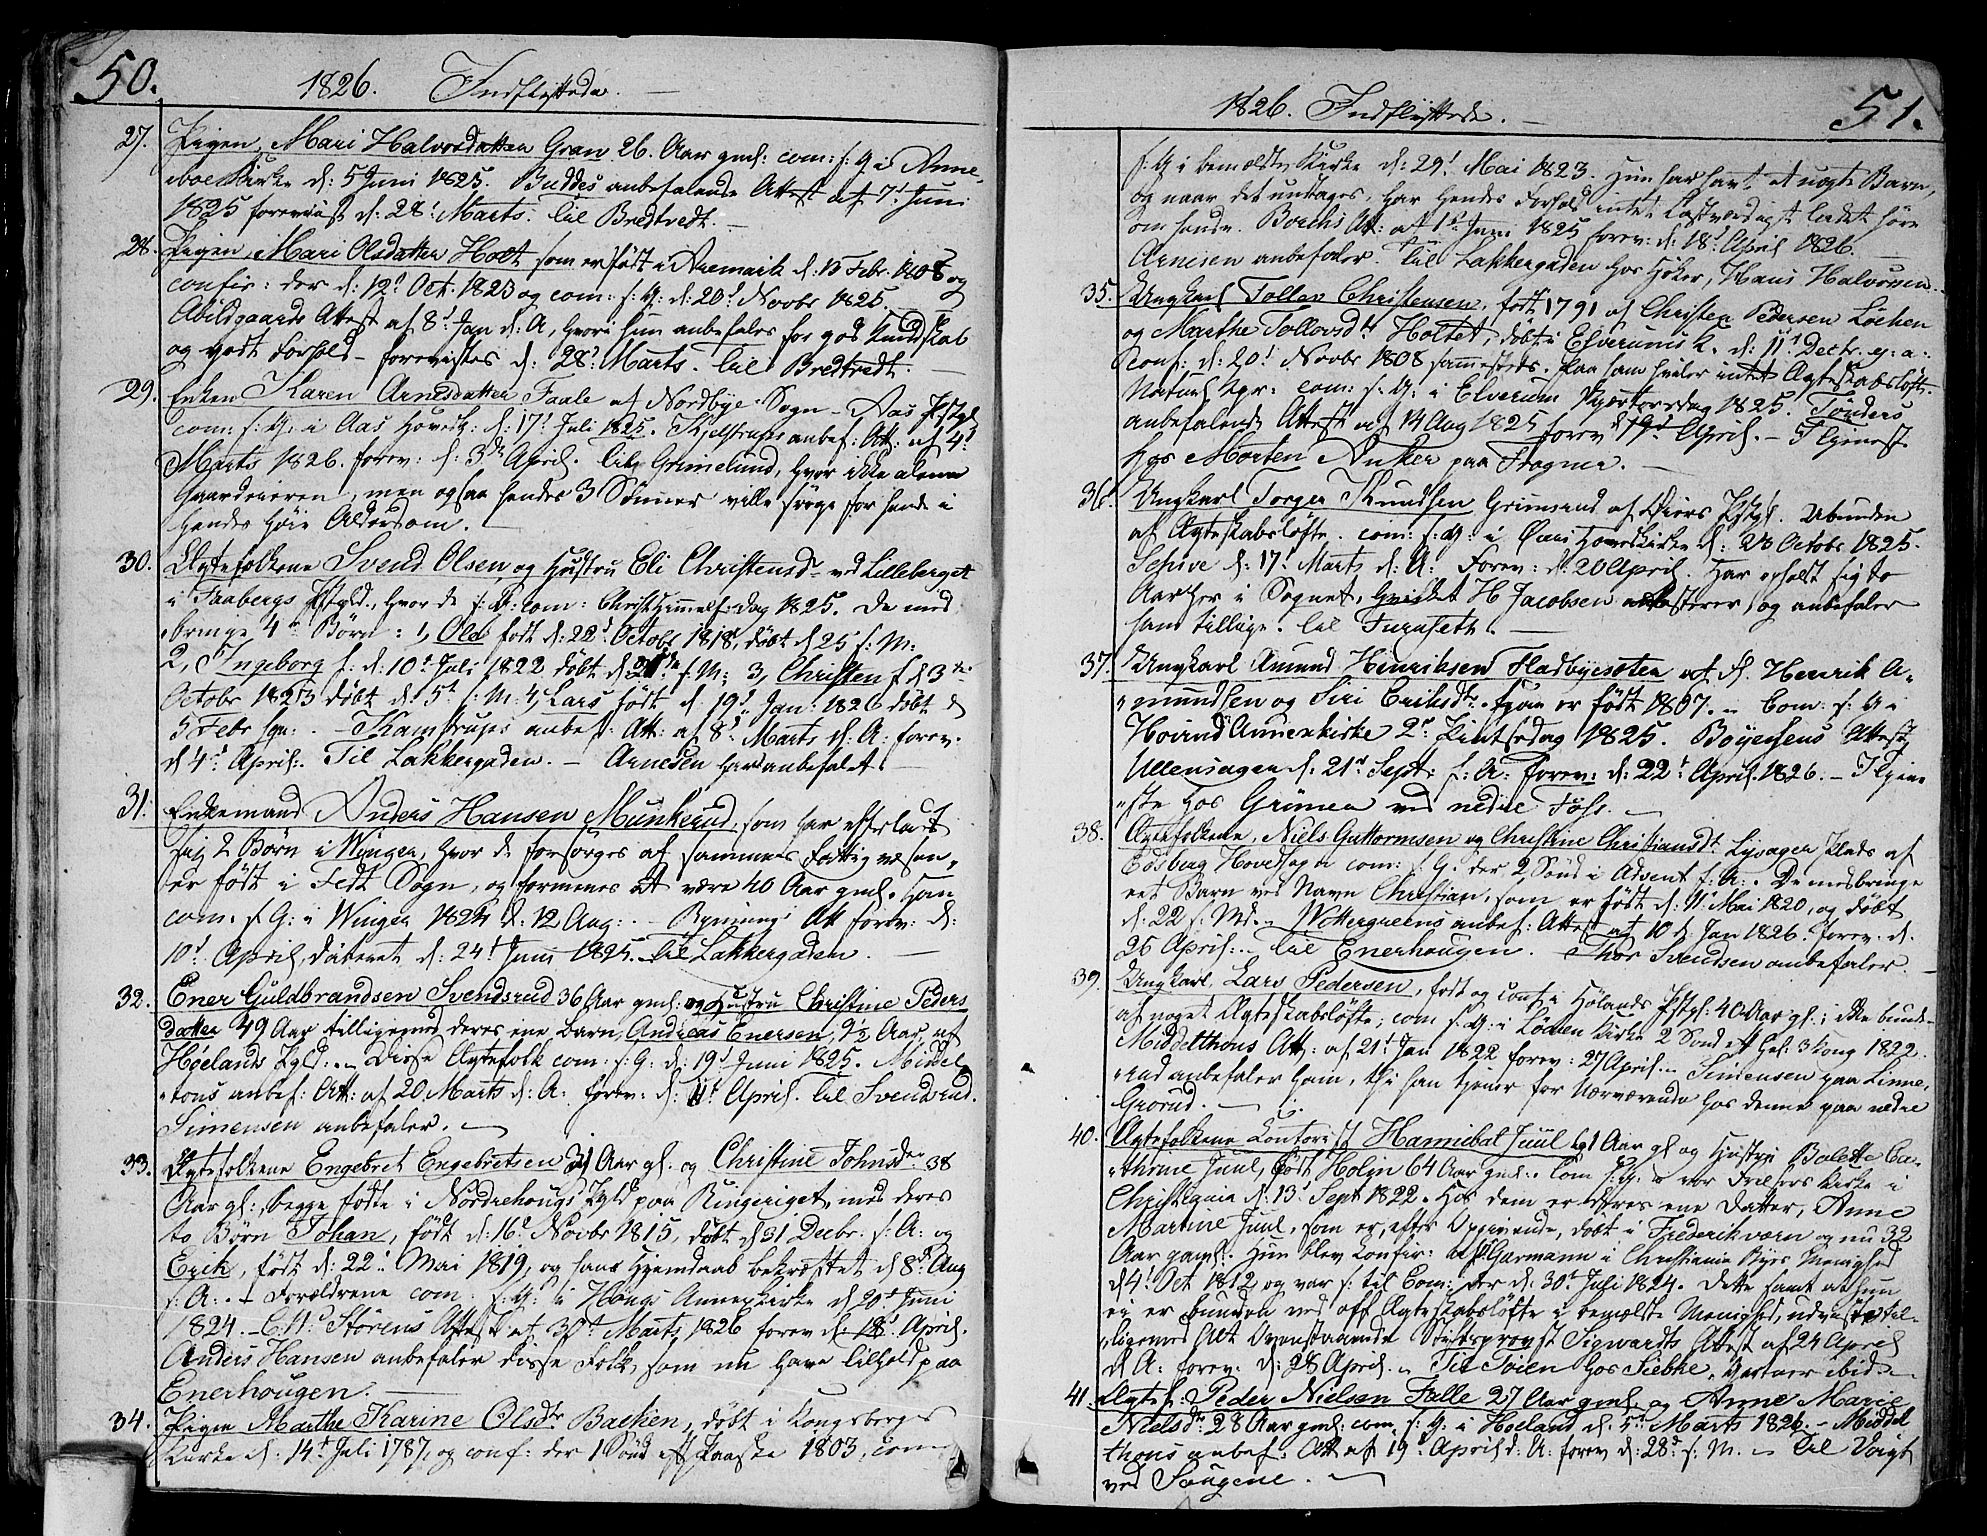 50.
1826. Indflyttede.
27. Pigen, Mari Halvorsdatter Gran 26. Aar gml: com: s: G i Anne-
-boe Kirke d: 5 Juni 1825. Buddes anbefalende Attest af 7d Juni
1825 foreviist d: 28d Marts. til Bredtvedt.
28. Pigen, Mari Olsdatter Holt, som er født i Aremark d: 13 Febr. 1808 og
confir: der d: 12d Oct. 1823 og com: s: G: d: 20d Novbr 1825.
Abildgaards Attest af 8d Jan d: A, hvori hun anbefales for god Kundskab
og godt Forhold - forevistes d: 28d Marts. til Bredtvedt.
29. Enken Karen Arnesdatter Faale af Nordbye Sogn - Aas Pstgld
com: s: G: i Aas Hovedk: d: 17d Juli 1825. Kjelstrups anbef: Att: af 4d
Marts 1826. forev: d: 3die April. til Grimelund, hvor ikke alene
Gaardeieren, men ogsaa hendes 3 Sønner ville sørge for hende i
hendes høie Alderdom.
30. Ægtefolkene Svend Olsen og Hustru Eli Christensdr ved Lilleberget
i Faabergs Pstgld., hvor de s: G: com: Christi Himmelf: dag 1825. De med
-bringe 4re Børn: 1, Ole født d: 22d Octobr 1818, døbt d 25 s: M.
2, Ingeborg f. d: 10d Juli 1822 døbt d 21de s: M; 3, Christen f d 3die
Octobr 1823 døbt d. 5t s: M. 4, Lars født d. 19d Jan: 1826 døbt d
5 Febr. Kamstrups anbef: Att: af 8d Marts d: A: forev.
d 4d April. Til Lakkergaden. - Arnesen har anbefalet
31. Enkemand Anders Hansen Munkerud, som har efterladt
sig 2 Børn i Winger, hvor de forsørges af sammes Fattigvæsen,
er født i Fedt Sogn, og formenes at være 40 Aar gml. Han
com. s: G: i Winger 1824 d: 12 Aug: . - Bynings Att forev: d:
10d April, dateret d: 24d Juni 1825. til Lakkergaden.
32. Ener Guldbrandsen Svendsrud 36 Aar gml: og Hustru Christine Peders
datter 49 Aar tilligemed deres ene Barn, Andreas Enersen, 9½ Aar, af
Høelands Pgld. - Disse Ægtefolk com: s: G: d: 19d Juni 1825. Middel
-tons anbef: Att: af 20 Marts d: A: forev: d: 11t April. til Svendsrud.
Simensen anbefaler.
33. Ægtefolkene Engebret Engebretsen 31 Aar gl. og Christine Johnsdr 38
Aar gl:, begge fødte i Nordrehougs Pgld paa Ringeriget, med deres
to Børn Johan, født d: 16d Novbr 1815, døbt d 31 Decbr. s: A: og
Erik, født d: 22: Mai 1819, og hans Hjemdaab bekræftet d 8d Aug
s: A: . - Forældrene com: s: G: i Hougs Annexkirke d 20d Juni
1824. - C. H. Størens Attest af 30d Marts 1826 forev d: 18d April.
Anders Hansen anbefaler disse Folk, som nu have tilhold paa
Enerhougen.
34. Pigen Marthe Karine Olsdr Backen, døbt i Kongsbergs
Kirke d: 14d Juli 1787, og conf: der 1 Sønd eft Paaske 1803, com
1826. Indflyttede. 51.
s: G i bemeldte Kirke d: 29d Mai 1823. Hun har havt et uægte Barn,
og naar det undtages, har hendes Forhold intet lastværdigt ladet høre
om hende. Borchs Att: af 1d Juni 1825 forev: d: 18d April 1826.
Arnesen anbefaler. Til Lakkergaden hos Høker, Hans Halvorsen.
35. Ungkarl Tollev Christensen, født 1791 af Christen Pedersen Løchen
og Marthe Tollovsdr Holtet, døbt i Elverums K. d: 11d Decbr. s: a:
Conf: d: 20d Novbr 1808 sammesteds. Paa ham hviler intet Ægteskabsløft.
Naturl Kpr: com: s: G: i Elverum Skjærtorsdag 1825. Tønders
anbefalende Attest af 14 Aug 1825 forev d 19d April. - Tjeneste
hos Morten Anker paa Frogner.
36. Ungkarl Torger Knudsen Grimsrud af Øiers Pstgl. Ubunden
af Ægteskabsløfte. com: s: G: i Øiers Hovedkirke d: 28 Octobr 1825.
Schive d: 17d Marts d: A: Forev: d: 20 April. Har opholdt sig to
Aar her i Sognet, hvilket H Jacobsen attesterer, og anbefaler
ham tillige. til Furuseth.
37. Ungkarl Amund Henriksen Fladbyeseter af d. Henrik A-
-mundsen og Siri Eriksdr. Han er født 1807. - Com: s: G i
Hovind Annexkirke 2d Pintsedag 1825. Boyesens Attest,
Ullensager d: 21d Sept: s: A: forev: d: 22d April. 1826. - Tjene
-ste hos Grüner ved nedre Foss.
38. Ægtefolkene, Niels Guttormsen og Christine Christiansdr Lysager Plads af
Edsberg Hovedsogn com: s: G. der 2, Sønd i Advent s: A: . De medbringe
eet Barn ved Navn Christian, som er født d: 11. Mai 1820, og døbt
d: 22 s: Md. Wettergreens anbef: Attest af 10 d: Jan 1826. forev. d.
26 April. - til Enerhougen. Thor Svendsen anbefaler.
39. Ungkarl, Lars Pedersen, født og conf: i Hølands Pstgl: 40 Aar gl: ikke bunde-
af noget Ægteskabsløfte; com s: G: i Løchen Kirke 2 Sønd eft Hel: 3 Kong 1822.
Middelthons Att: af 21d Jan 1822 forev: 27 April. - Simensen paa Linne-
-rud anbefaler ham, thi han tjener for Nærværende hos denne paa nedre
Grorud.
40. Ægtefolkene Kontorist Hannibal Juul 61 Aar gl og Hustru Bolette Ca-
-thrine Juul, født Holm 64 Aar gml. Com s: G: i vor Frelsers Kirke i
Christiania d: 13d Sept 1822. Hos dem er deres ene Datter, Anne
Martine Juul, som er, efter Opgivende, døbt i Frederiksværn og nu 32
Aar gaml. Hun blev confir: af Garmann i Christiania Byes Menighed
d 4d Oct 1812 og var s: til Com: der d: 30d Juli 1824. Dette samt at hun
ei er bunden ved off Ægteskabsløfte i bemeldte Menighed, udviser til-
-ligemed Alt Ovenstaaende Stiftsprovst Sigwardts Attest af 24 April
d A: forev: d: 28 April. - Til Toien hos Siebke, Gartner ibid.
41. Ægtef. Peder Nielsen Falle 27 Aar gml og Anne Marie
Nielsdr 28 Aar gml: com. s: G. i Høeland d: 5d Marts 1826. - Middel
thons anbef: Att af 19d April d: A: forev d: 28d s: M. - til Voigt
ved Saugene.